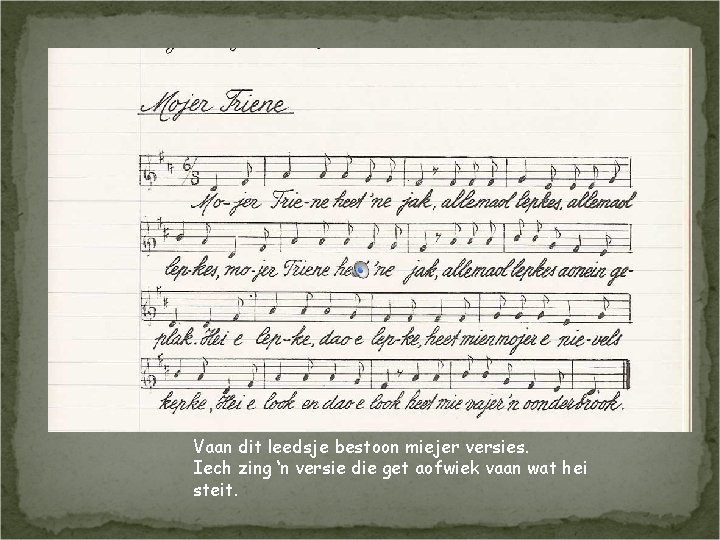 Mojer Triene
6/8
Mo-jer Trie-ne heet 'ne jak, allemaol lepkes, allemaol
lep-kes, mo-jer Triene heet 'ne jak, allemaol lepkes aonein ge-
plak. Hei e lep-ke, dao e lep-ke, heet mien mojer e nie-vels
kepke, Hei e look en dao e look heet mie vajer 'n oonderbrook.
Vaan dit leedsje bestoon miejer versies.
Iech zing 'n versie die get aofwiek vaan wat hei
steit.